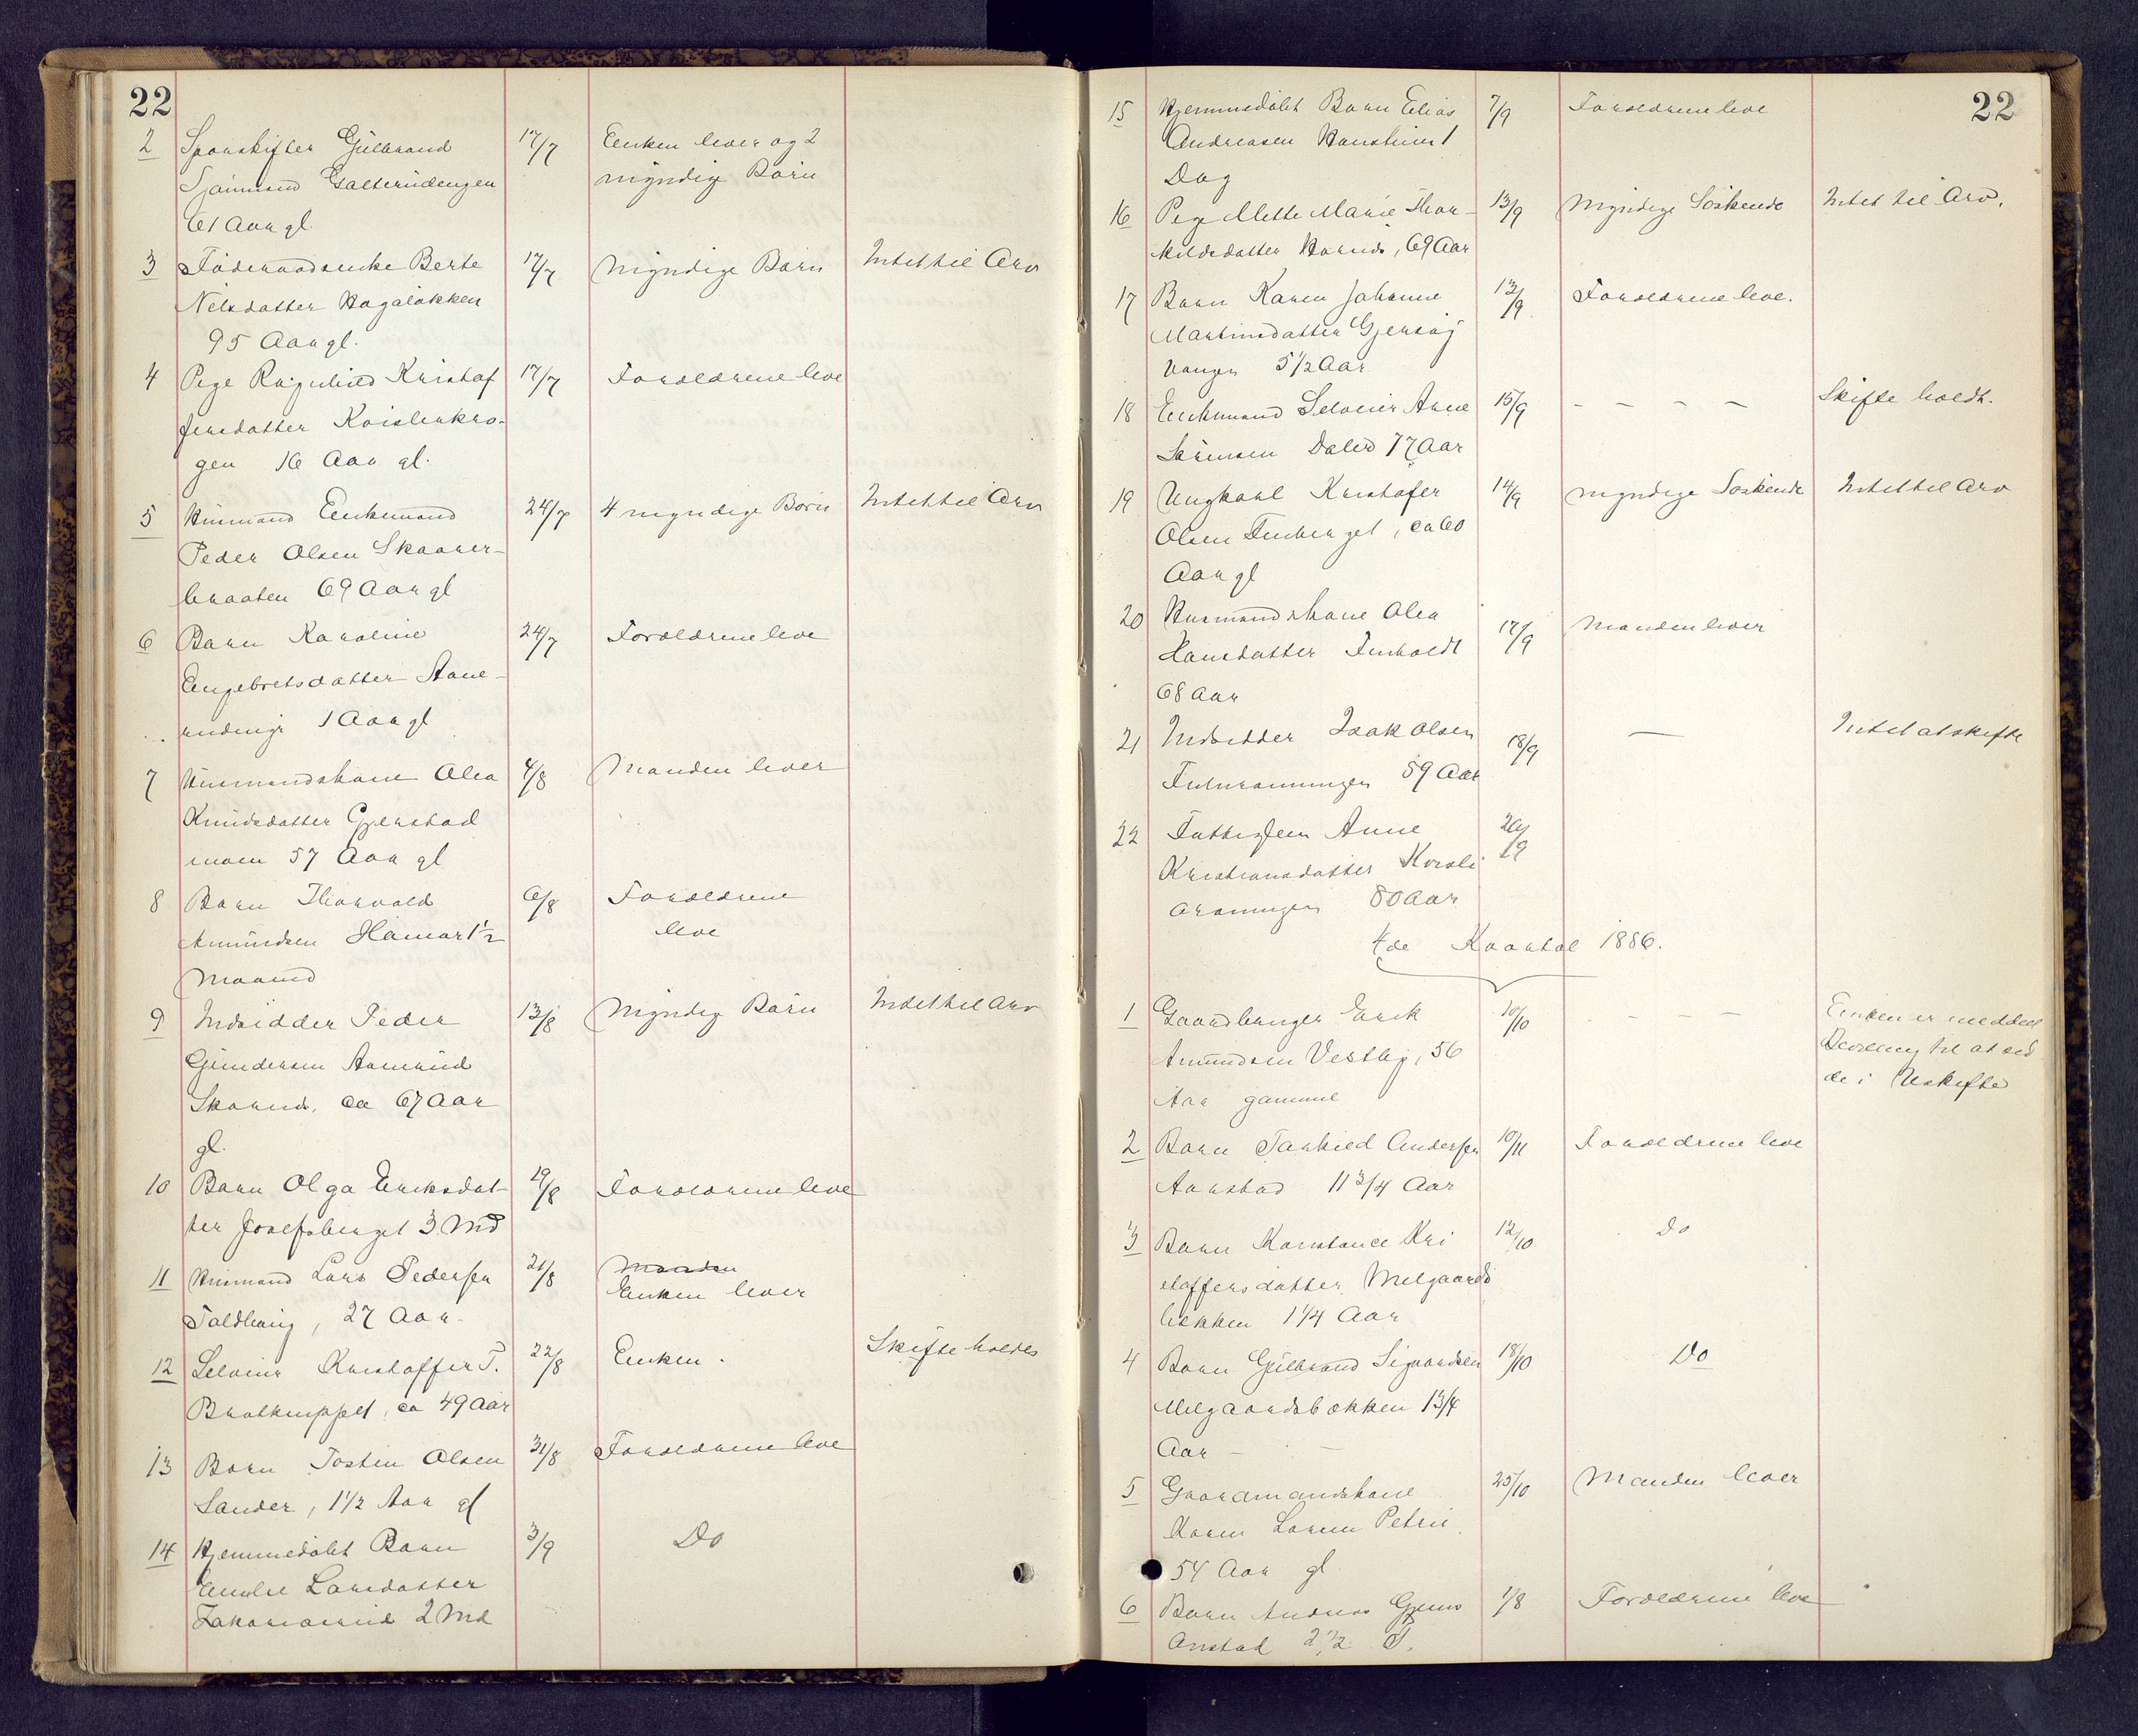 22
2 Sporskifter Gulbrand 17/7 Enken lever og 2
Galterudengen myndige Børn
61 Aar gl.
3 Föderaadsenke Berte 17/7 Myndige Børn Intet til Arv
Nilsdatter Hagaløkken
95 Aar gl.
4 Pige Ragnhild Kristof 17/7 Forældrene leve
fersdatter
gen 16 Aar gl.
5 Husmand Enkemand 24/7 4 myndige Børn Intet til Arv
Peder Olsen Skaarer-
braaten 69 Aar gl
6 Barn Karoline 24/7 Forældrene leve
Engebretsdatter
1 Aar gl
7 Husmandskone Olea 4/8 Manden lever
Knudsdatter Gjerstad
moen 57 Aar gl
8 Barn Thorvald 6/8 Forældrene
Amundsen Hamar 1 1/2 leve
Maaned
9 Indsidder Peder 13/8 Myndige Børn Intet til Arv
Gundersen Aamrud
Skarud, ca 67 Aar
gl.
10 Barn Olga Eriksdat- 19/8 Forældrene leve
ter Josefsberget 3 Md
11 Husmand Lars Pedersen 21/8 Manden
Enken lever
Toldhaug, 27 Aar
12 Selveier Kristoffer T. 22/8 Enken. Skifte holdes
Bratknippet, ca 49 Aar
13 Barn Tostin Olsen 31/8 Forældrene leve
Sander, 1 1/2 Aar gl
14 Hjemmedøbt Barn 3/9 Do
Larsdatter
2 Md
22
15 Hjemmedøbt Barn Elias 7/9 Forældrene leve
Andreasen 1
Dag
16 Pige Mette Marie Thor- 13/9 Myndige Søskende Intet til Arv.
kildsdatter Harud, 69 Aar
17 Barn Karen Johanne 13/9 Forældrene leve.
Martinsdatter Gjersøj
vangen 5 1/2 Aar
18 Enkemand Selveier Arne 15/9 - - - - Skifte holdt.
Sørensen Dalud 77 Aar
19 Ungkarl Kristofer 14/9 myndige Søskende Intet til Arv
Olsen Finberget, ca 60
Aar gl
20 Husmandskone Olea 17/9 Manden lever
Hansdatter Finholdt
68 Aar
21 Indsidder Isak Olsen 18/9 — Intet at skifte
59 Aar
22 Fattiglem Anne 20/9
Kristiansdatter Korsli
80 Aar
4de Kvartal 1886.
1 Gaardbruger Erik 10/10 - - - Enken er meddelt
Amundsen Vestby, 56 Bevilling til at sid
Aar gammel de i Uskifte
2 Barn Tarkild Andersen 10/11 Forældrene leve
Aarstad 11 3/4 Aar
3 Barn Konstance Kri 12/10 Do
stoffersdatter Melgaards
bakken 1 1/4 Aar
4 Barn Gulbrand Sigvardsen 18/10 Do
Melgaardsbakken 1 3/4
Aar -
5 Gaardmandskone 25/10 Manden lever
Karen Lovise Petrie
54 Aar gl
6 Barn Andreas 1/8 Forældrene leve
2 1/2